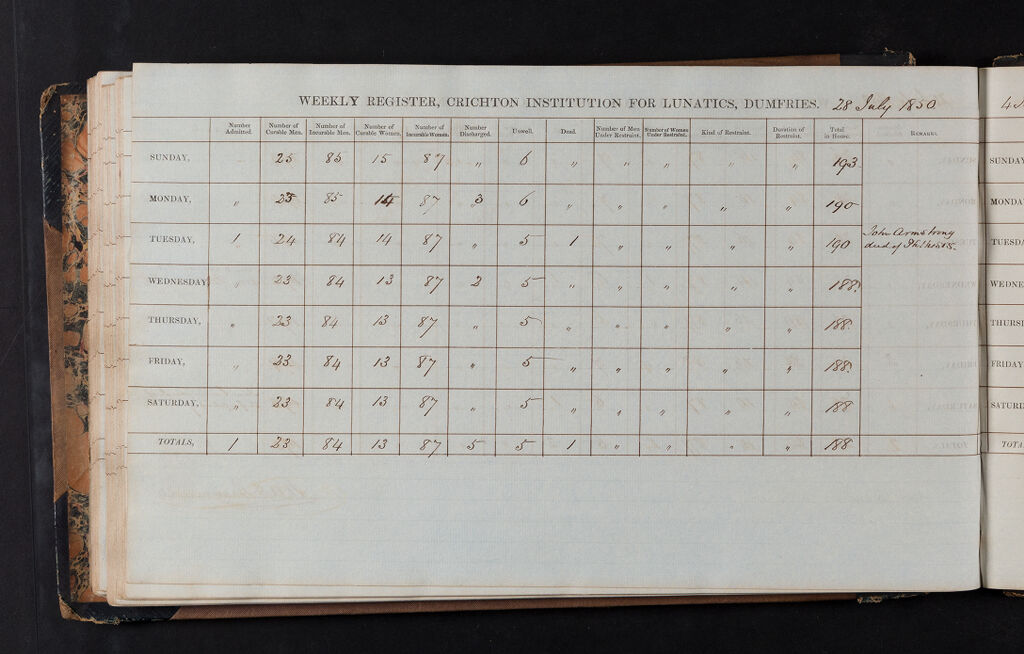 WEEKLY REGISTER, CRICHTON INSTITUTION FOR LUNATICS, DUMFRIES. 28 July 1850
Number Admitted. Number of Curable Men. Number of Incurable Men. Number of Curable Women. Number of Incurable Women. Number Discharged. Unwell. Dead. Number of Men Under Restraint. Number of Women Under Restraint. Kind of Restraint. Duration of Restraint. Total in House. REMARKS.
SUNDAY, 25 85 15 87 " 6 " " " " " 193
MONDAY, " 23 85 14 87 3 6 " " " " " 190
TUESDAY, 1 24 84 14 87 " 5 1 " " " " 190 John Armstrong died of Phthisis.
WEDNESDAY, " 23 84 13 87 2 5 " " " " " 188
THURSDAY, " 23 84 13 87 " 5 " " " " " 188
FRIDAY, " 23 84 13 87 " 5 " " " " " 188
SATURDAY, " 23 84 13 87 " 5 " " " " " 188
TOTALS, 1 23 84 13 87 5 5 1 " " " " 188
SUNDAY
MONDA
TUESDA
WEDNES
THURSI
FRIDAY
SATURI
TOTA